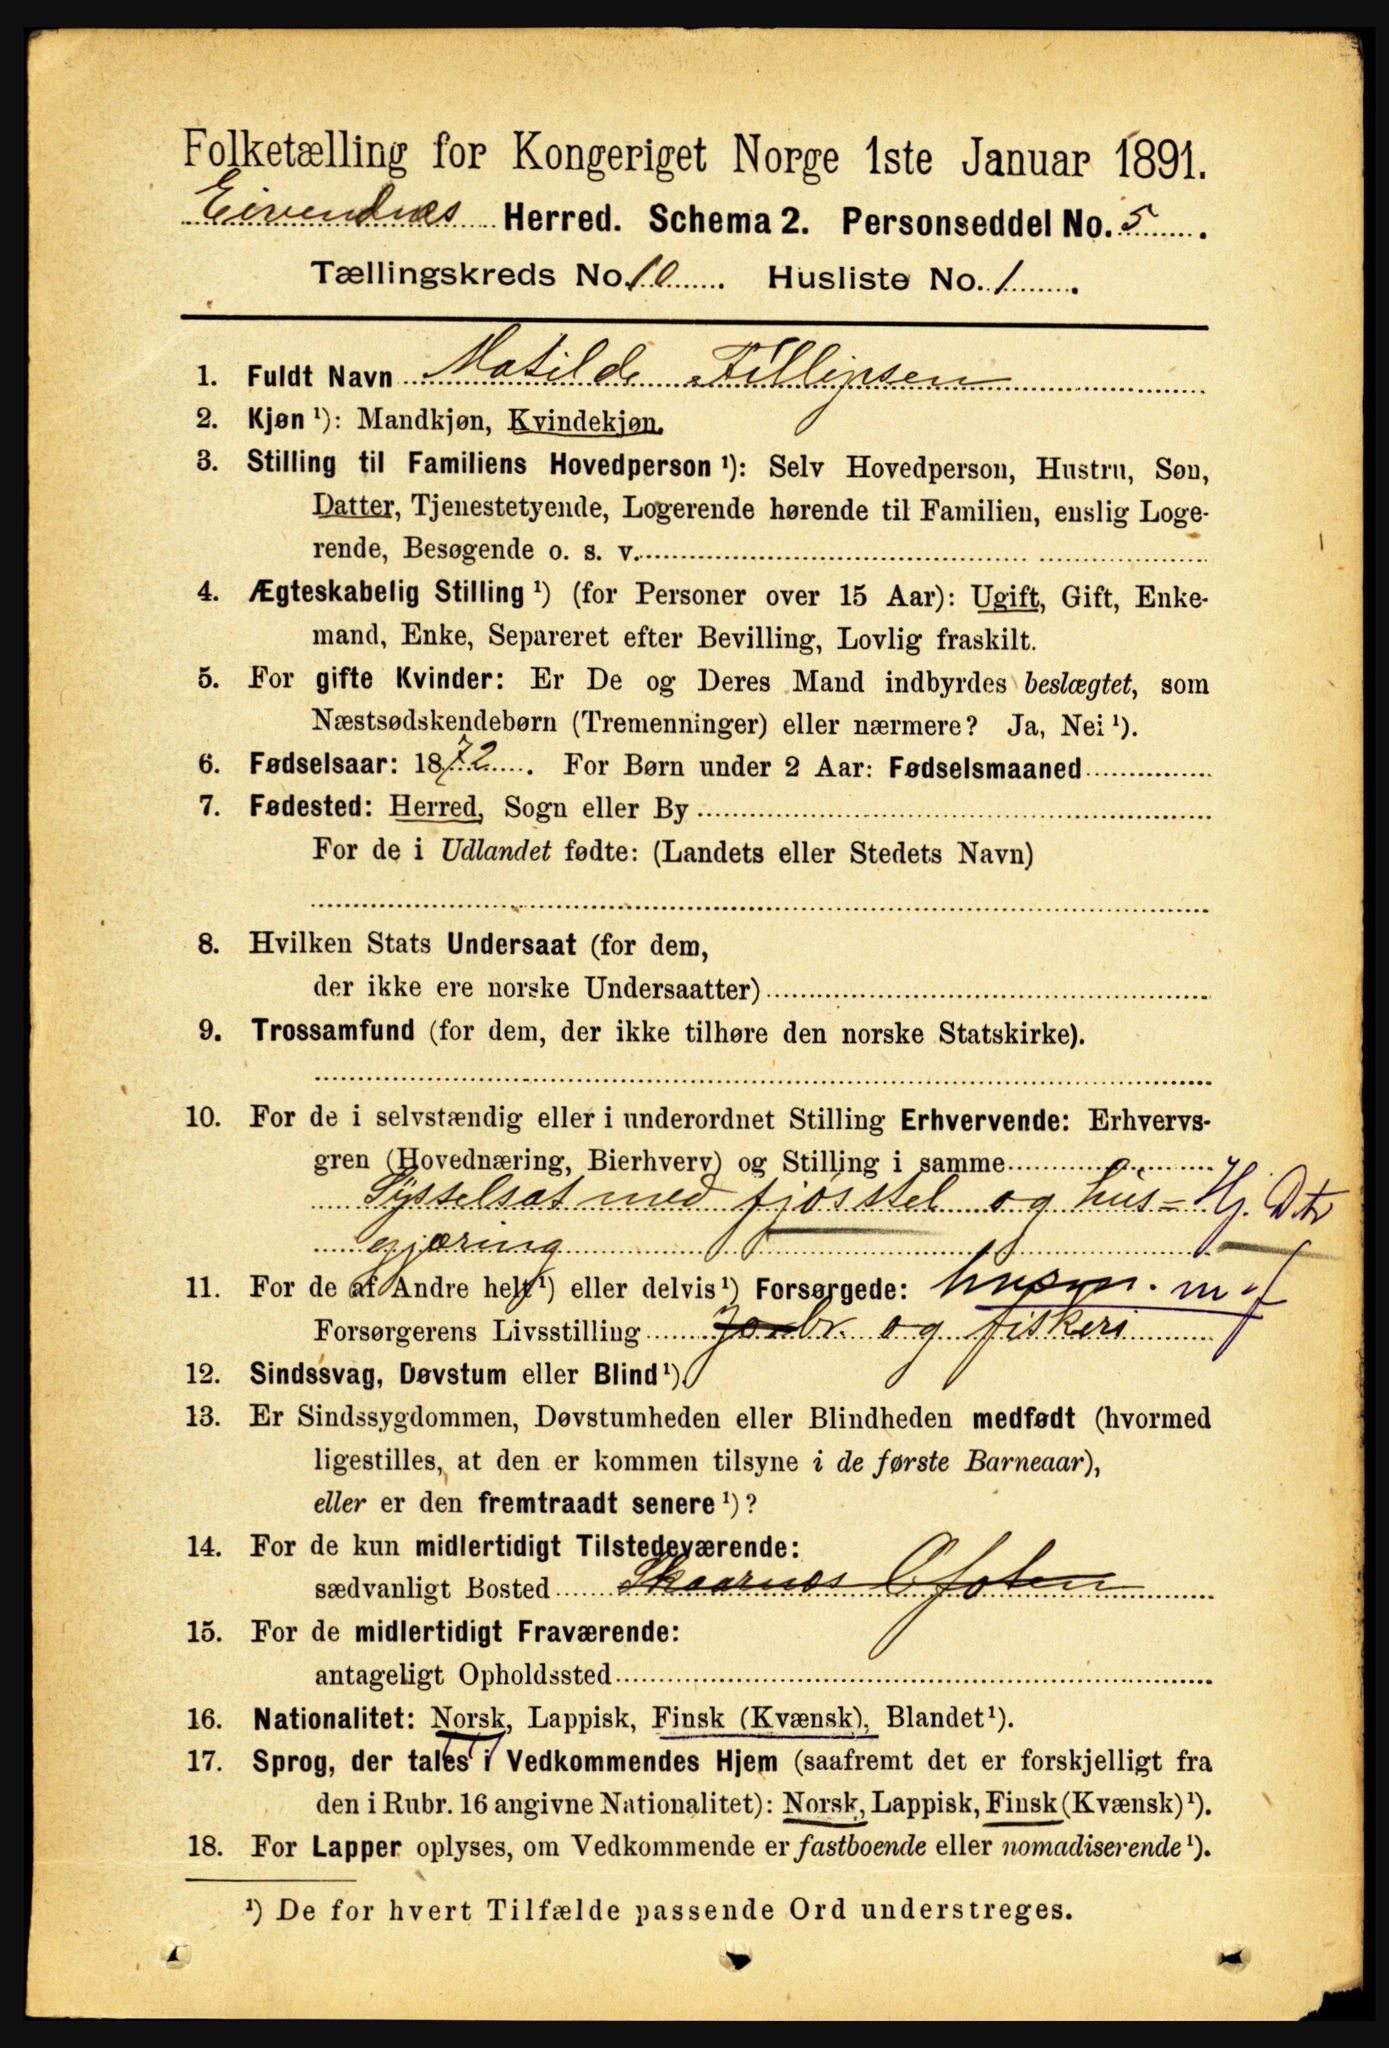 Folketælling for Kongeriget Norge 1ste Januar 1891.
Eivendnæs Herred. Schema 2. Personseddel No. 5.
Tællingskreds No. 10. Husliste No. 1.
1. Fuldt Navn Matilde Fillipsen
2. Kjøn ¹): Mandkjøn, Kvindekjøn.
3. Stilling til Familiens Hovedperson ¹): Selv Hovedperson, Hustru, Søn,
Datter, Tjenestetyende, Logerende hørende til Familien, enslig Loge-
rende, Besøgende o. s. v.
4. Ægteskabelig Stilling ¹) (for Personer over 15 Aar): Ugift, Gift, Enke-
mand, Enke, Separeret efter Bevilling, Lovlig fraskilt.
5. For gifte Kvinder: Er De og Deres Mand indbyrdes beslægtet, som
Næstsødskendebørn (Tremenninger) eller nærmere? Ja, Nei ¹).
6. Fødselsaar: 1872. For Børn under 2 Aar: Fødselsmaaned
7. Fødested: Herred, Sogn eller By
For de i Udlandet fødte: (Landets eller Stedets Navn)
8. Hvilken Stats Undersaat (for dem,
der ikke ere norske Undersaatter)
9. Trossamfund (for dem, der ikke tilhøre den norske Statskirke).
10. For de i selvstændig eller i underordnet Stilling Erhvervende: Erhvervs-
gren (Hovednæring, Bierhverv) og Stilling i samme
Sysselsat med fjøsstel og hus- Hj. Dtr
gjæring
11. For de af Andre helt ¹) eller delvis ¹) Forsørgede: husm. m f
Forsørgerens Livsstilling Jordbr. og fiskeri
12. Sindssvag, Døvstum eller Blind ¹).
13. Er Sindssygdommen, Døvstumheden eller Blindheden medfødt (hvormed
ligestilles, at den er kommen tilsyne i de første Barneaar),
eller er den fremtraadt senere ¹)?
14. For de kun midlertidigt Tilstedeværende:
sædvanligt Bosted Skaarnæs Ofoten
15. For de midlertidigt Fraværende:
antageligt Opholdssted
16. Nationalitet: Norsk, Lappisk, Finsk (Kvænsk), Blandet ¹).
17. Sprog, der tales i Vedkommendes Hjem (saafremt det er forskjelligt fra
den i Rubr. 16 angivne Nationalitet): Norsk, Lappisk, Finsk (Kvænsk) ¹).
18. For Lapper oplyses, om Vedkommende er fastboende eller nomadiserende ¹).
¹) De for hvert Tilfælde passende Ord understreges.